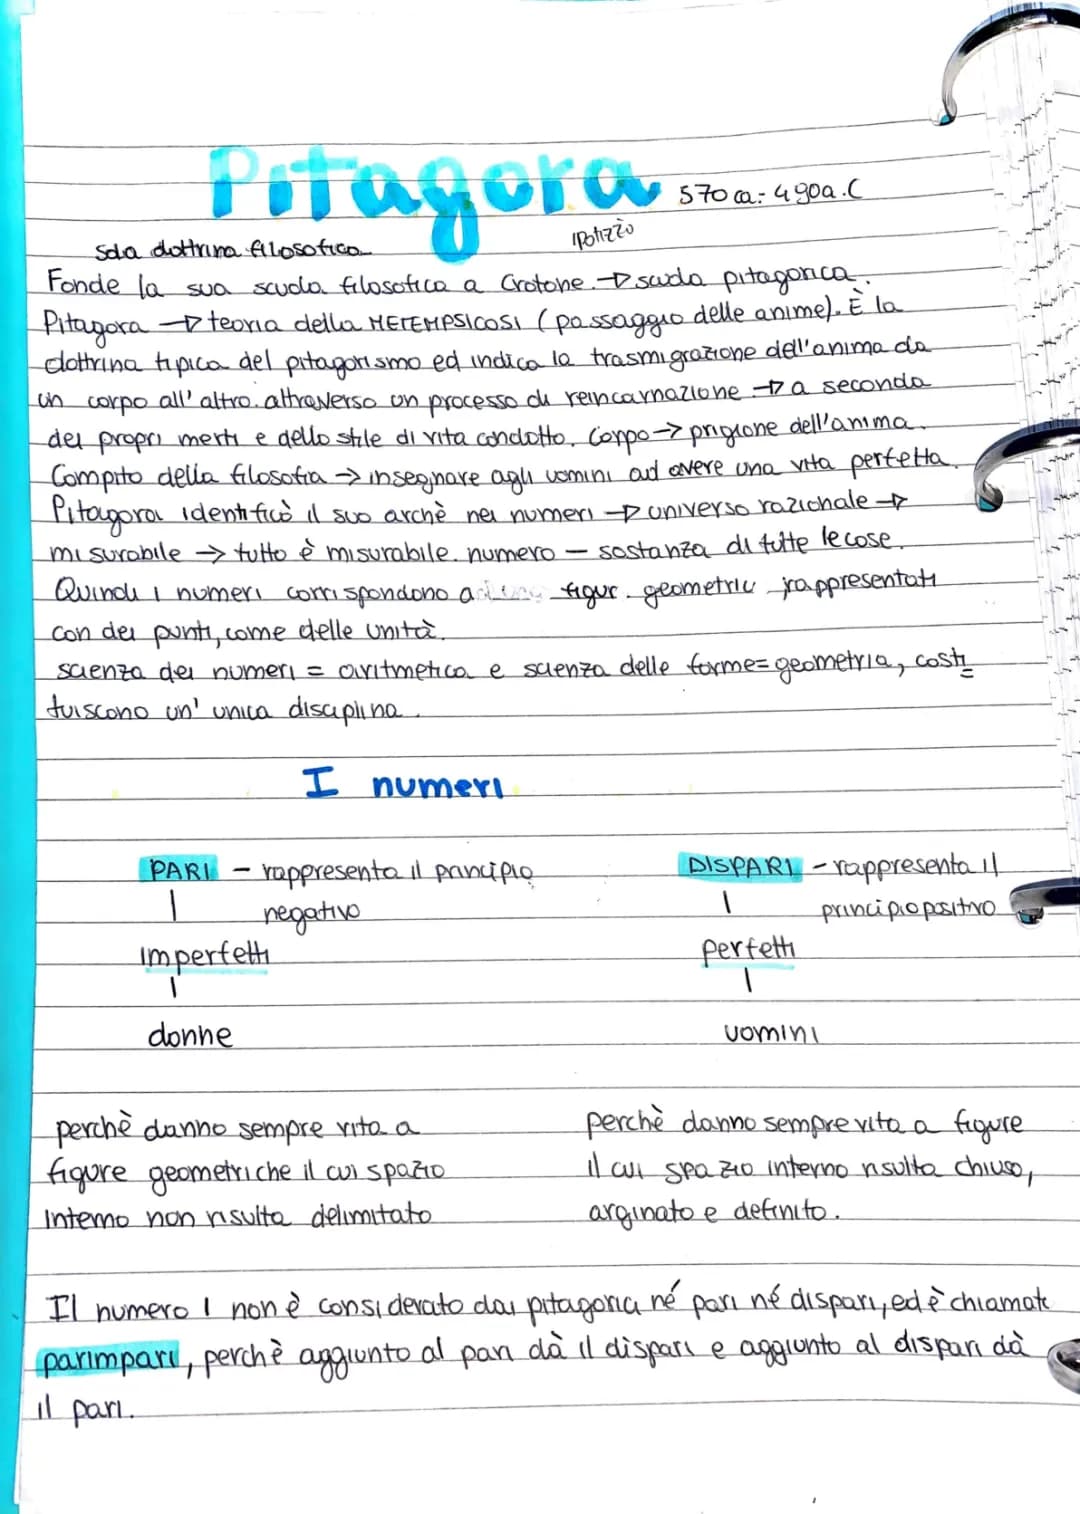 Pitagora 570 a.-490a.C
dottrina filosofica
Fonde la sua scuola filosofica a Crotone. → scuola pitagorica.
Pitagora → teoria della METEMPSICOSI (passaggio delle anime). È la
dottrina tipica del pitagorismo ed indica la trasmigrazione dell'anima da
un corpo all'altro. attraverso un processo di reincarnazione → a seconda
dei propri meriti e dello stile di vita condotto. Corpo → prigione dell'anima.
Compito della filosofia → insegnare agli uomini ad avere una vita perfetta.
Pitagora identificò il suo archè nei numeri → universo razionale →
misurabile → tutto è misurabile. numero - sostanza di tutte le cose.
Quindi i numeri corrispondono a figur. geometric rappresentati
con dei punti, come delle unità.
scienza dei numeri = aritmetica e scienza delle forme= geometria, costi
tuiscono un' unica disciplina.
I numeri
PARI - rappresenta il principio DISPARI - rappresenta il
negativo principio positivo
imperfetti perfetti
donne uomini
perchè danno sempre vita a perchè danno sempre vita a figure
figure geometriche il cui spazio il cui spazio interno risulta chiuso,
interno non risulta delimitato arginato e definito.
Il numero 1 non è considerato dai pitagorici né pari né dispari, ed è chiamat
parimpari, perchè aggiunto al pari dà il dispari e aggiunto al dispari dà
il pari.